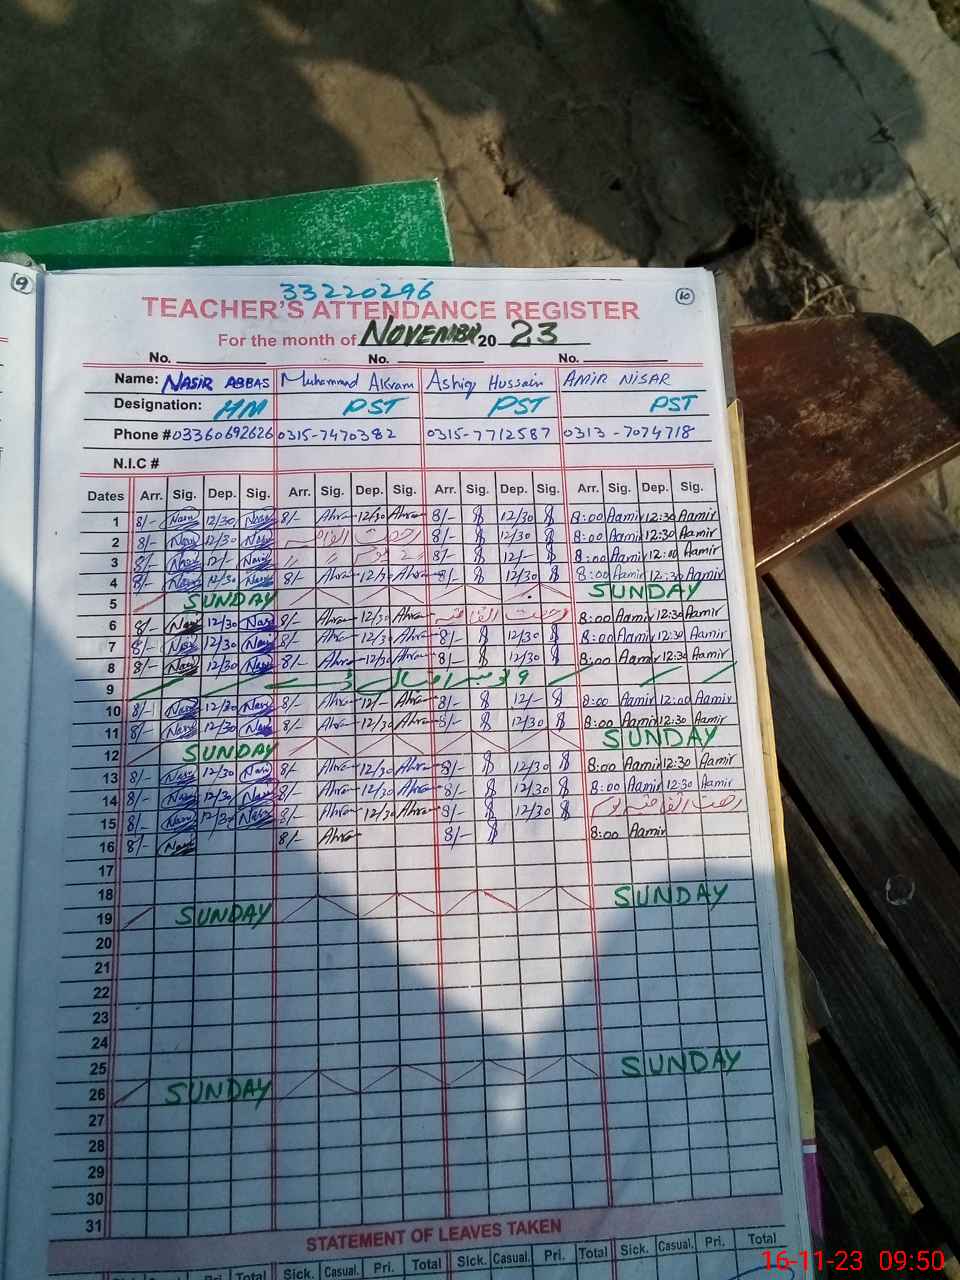 9
10
33220296
TEACHER'S ATTENDANCE REGISTER
For the month of NOVEMBR 2023
No. No. No.
Name: NASIR ABBAS Muhammad Akram Ashiq Hussain AMIR NISAR
Designation: HM PST PST PST
Phone # 03360692626 0315-7470382 0315-7712587 0313-7074718
N.I.C #
Dates Arr. Sig. Dep. Sig. Arr. Sig. Dep. Sig. Arr. Sig. Dep. Sig. Arr. Sig. Dep. Sig.
1 8/- Nasir 12/30 Nasir 8/- 12/30 8/- 12/30 8:00 Aamir 12:30 Aamir
2 8/- Nasir 12/30 Nasir رخصت اتفاقیہ 8/- 12/30 8:00 Aamir 12:30 Aamir
3 8/- Nasir 12/- Nasir 8/- 12/- 8:00 Aamir 12:00 Aamir
4 8/- Nasir 12/30 Nasir 8/- 12/30 8/- 12/30 8:00 Aamir 12:30 Aamir
5 SUNDAY SUNDAY
6 8/- Nasir 12/30 Nasir 8/- 12/30 رخصت اتفاقیہ 8:00 Aamir 12:30 Aamir
7 8/- Nasir 12/30 Nasir 8/- 12/30 8/- 12/30 8:00 Aamir 12:30 Aamir
8 8/- Nasir 12/30 Nasir 8/- 12/30 8/- 12/30 8:00 Aamir 12:30 Aamir
9 9 نومبر اقبال ڈے
10 8/- Nasir 12/30 Nasir 8/- 12/- 8/- 12/- 8:00 Aamir 12:00 Aamir
11 8/- Nasir 12/30 Nasir 8/- 12/30 8/- 12/30 8:00 Aamir 12:30 Aamir
12 SUNDAY SUNDAY
13 8/- Nasir 12/30 Nasir 8/- 12/30 8/- 12/30 8:00 Aamir 12:30 Aamir
14 8/- Nasir 12/30 Nasir 8/- 12/30 8/- 12/30 8:00 Aamir 12:30 Aamir
15 8/- Nasir 12/30 Nasir 8/- 12/30 8/- 12/30 رخصت اتفاقیہ
16 8/- Nasir 8/- 8/- 8:00 Aamir
17
18
19 SUNDAY SUNDAY
20
21
22
23
24
25
26 SUNDAY SUNDAY
27
28
29
30
31
STATEMENT OF LEAVES TAKEN
Sick. Casual. Pri. Total Sick. Casual. Pri. Total Sick. Casual. Pri. Total Sick. Casual. Pri. Total
16-11-23 09:50